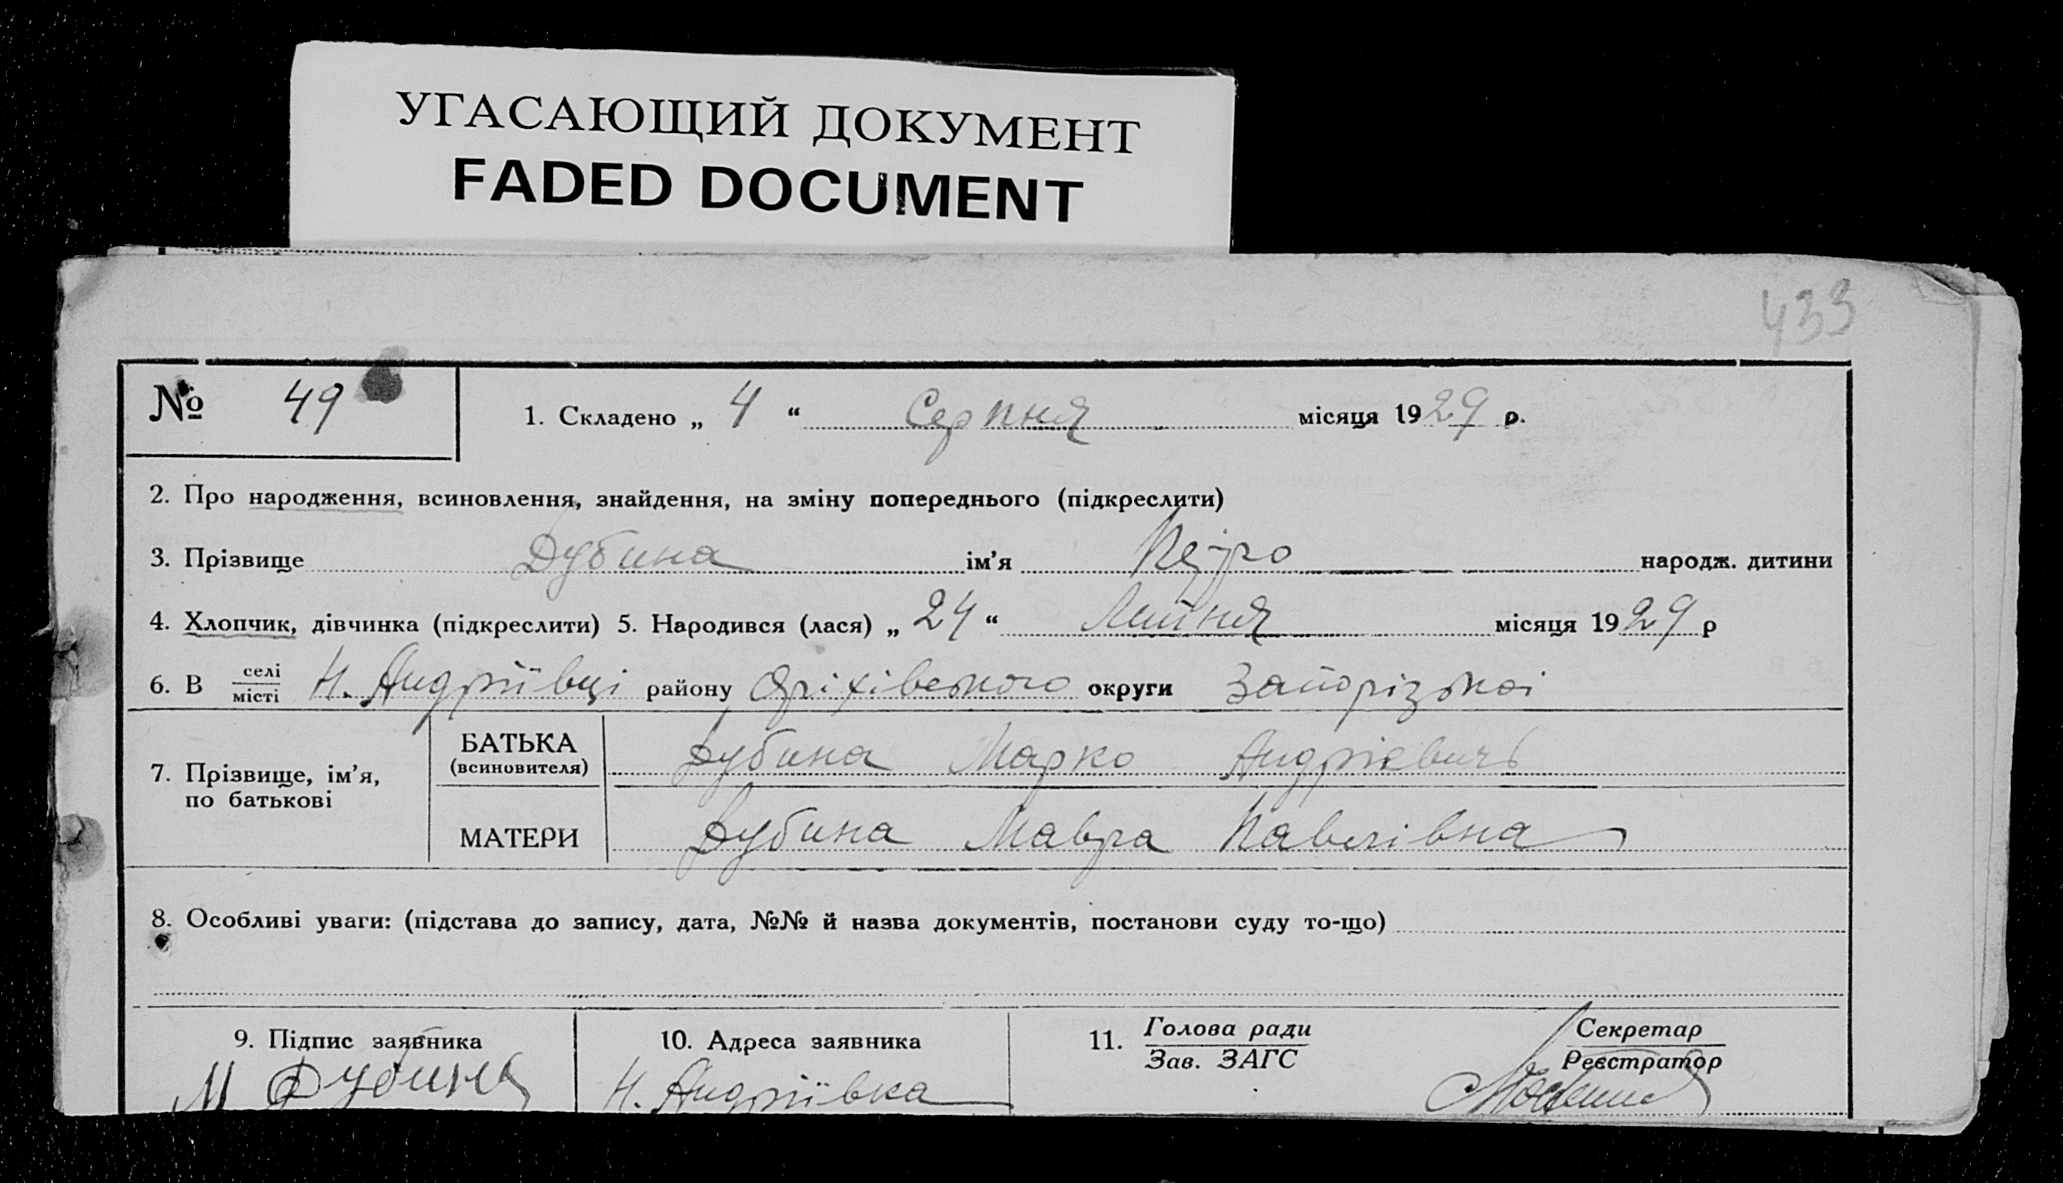 УГАСАЮЩИЙ ДОКУМЕНТ
FADED DOCUMENT
433
№ 49
1. Складено „ 4 “ Серпня місяця 1929 р.
2. Про народження, всиновлення, знайдення, на зміну попереднього (підкреслити)
3. Прізвище Дубина ім’я Петро народж. дитини
4. Хлопчик, дівчинка (підкреслити) 5. Народився (лася) „ 24 “ Липня місяця 1929 р
6. В селі місті Н. Андріївці району Оріхівського округи Запорізькоі
7. Прізвище, ім’я, по батькові
БАТЬКА (всиновителя) Дубина Марко Андрієвичь
МАТЕРИ Дубина Мавра Павлівна
8. Особливі уваги: (підстава до запису, дата, №№ й назва документів, постанови суду то-що)
9. Підпис заявника
М Дубина
10. Адреса заявника
Н. Андріївка
11. Голова ради
Зав. ЗАГС
Секретар
Реєстратор